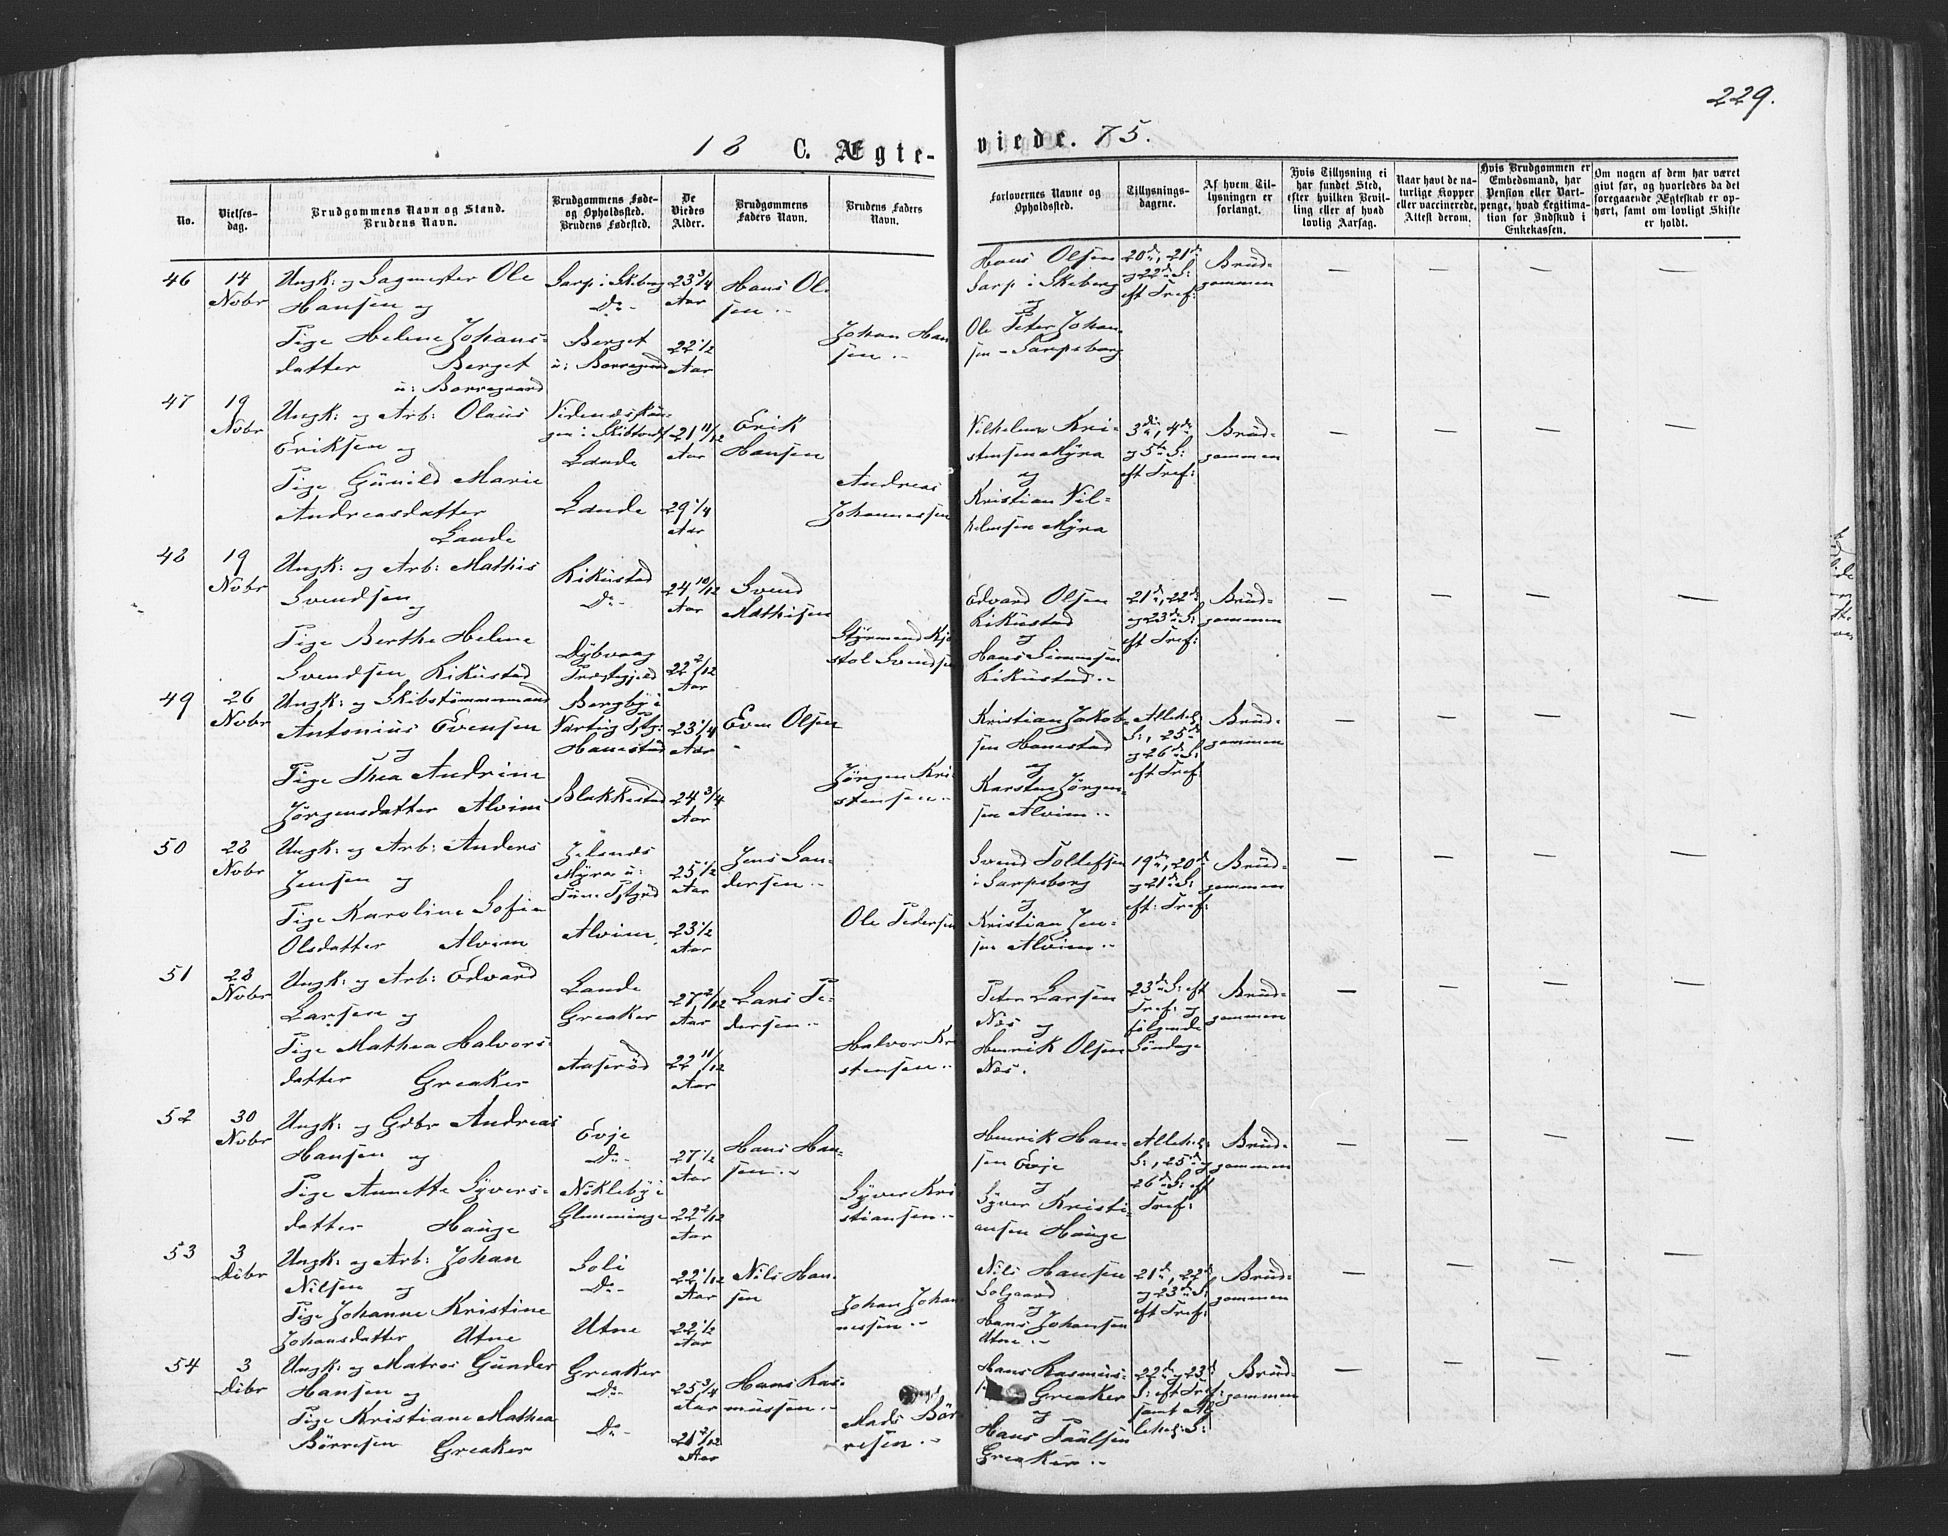 229.
18 C. Ægte-viede. 75.
No.
Vielses-
dag.
Brudgommens Navn og Stand.
Brudens Navn.
Brudgommens Føde-
og Opholdssted.
Brudens Fødested.
De
Viedes
Alder.
Brudgommens
Faders Navn.
Brudens Faders
Navn.
Forlovernes Navne og
Opholdssted.
Tillysnings-
dagene.
Af hvem Til-
lysningen er
forlangt.
Hvis Tillysning ei
har fundet Sted,
efter hvilken Bevil-
ling eller af hvad
lovlig Aarsag.
Naar havt de na-
turlige Kopper
eller vaccinerede,
Attest derom.
Hvis Brudgommen er
Embedsmand, har
Pension eller Vart-
penge, hvad Legitima-
tion for Indskud i
Enkekassen.
Om nogen af dem har været
givt før, og hvorledes da det
foregaaende Ægteskab er op-
hørt, samt om lovligt Skifte
er holdt.
46
14
Novbr
Ungk: og Sagmester Ole
Hansen og
Pige Helene Johans-
datter Berget
u: Borregaard
Sarp i Skeberg
Do -
Berget
u: Borregaard
23 3/4
Aar
22 1/2
Aar
Hans Ol-
sen
Johan Han
sen
Hans Olsen
Sarp i Skeberg
og
Ole Peter Johan-
sen - Sarpsborg
20de, 21de
og 22de S:
eft Tref:
Brud-
gommen
— — — —
47
19
Novbr
Ungk: og Arb: Olaus
Eriksen og
Pige Gunild Marie
Andreasdatter
Lande
Lande
Lande
21 11/12
Aar
29 1/4
Aar
Erik
Hansen
Andreas
Johannessen
Vilhelm Kri-
stensen Myra
og
Kristian Vil-
helmsen Myra
3die, 4de
og 5te S:
eft Tref:
Brud-
gommen
— — — —
48
19
Novbr
Ungk: og Arb: Mathis
Svendsen
og
Pige Berthe Helene
Svendsen Kikustad
Kikustad
Do -
Dybvaag
Præstegjeld
24 10/12
Aar
22 2/12
Aar
Svend
Mathisen
Styrmand Kjø
stol Svendsen
Edvard Olsen
Kikustad
og
Hans Simensen
Kikustad
21de, 22de
og 23de S:
eft Tref:
Brud-
gommen
— — — —
49
26
Novbr
Ungk: og Skibstømmermand
Antonius Evensen
og
Pige Thea Andrine
Jørgensdatter Alvim
Bergby i
Varteig Pstg:
Hanestad
Blakkestad
23 1/4
Aar
24 3/4
Aar
Even Olsen
Jørgen Kri-
stensen
Kristian Jakob-
sen Hanestad
og
Karsten Jørgen-
sen Alvim
Allehel:
S:, 25de
og 26de S:
eft Tref:
Brud-
gommen
— — — —
50
28
Novbr
Ungk: og Arb: Anders
Jensen og
Pige Karoline Sofie
Olsdatter Alvim
Myra u:
Tune Pstgjd
Alvim
25 1/2
Aar
23 1/2
Aar
Jens San-
dersen
Ole Pedersen
Svend Tollefsen
i Sarpsborg
og
Kristian Jen-
sen Alvim
19de, 20de
og 21de S:
eft: Tref:
Brud-
gommen
— — — —
51
28
Novbr
Ungk: og Arb: Edvard
Larsen og
Pige Mathea Halvors-
datter Greaker
Lande
Greaker
Aaserød
27 2/12
Aar
22 11/12
Aar
Lars Pe-
dersen
Halvor Kri
stensen
Peter Larsen
Næs og
Henrik Olsen
Næs.
23de S: eft
Tref: og
følgende
Søndage
Brud-
gommen
— — — —
52
30
Novbr
Ungk: og Gdbr Andreas
Hansen og
Pige Annette Syvers-
datter Hauge
Evje
Do -
Nokleby i
Glemminge
27 1/2
Aar
22 2/12
Aar
Hans Han-
sen
Syver Kri-
stiansen
Henrik Han-
sen Evje
og
Syver Kristi-
ansen Hauge
Allehel:
S:, 25de og
26de S: eft
Tref:
Brud-
gommen
— — — —
53
3
Dcbr
Ungk: og Arb: Johan
Nilsen og
Pige Johanne Kristine
Johansdatter Utne
Soli
Do -
Utne
22 1/12
Aar
22 1/2
Aar
Nils Han-
sen
Johan Johan-
nessen
Nils Hansen
Solgaard
og
Hans Johansen
Utne
21de, 22de
og 23de S:
eft Tref:
Brud-
gommen
— — — —
54
3
Dcbr
Ungk: og Matros Gunder
Hansen og
Pige Kristiane Mathea
Børresen Greaker
Greaker
Do -
Do -
25 3/4
Aar
21 2/12
Aar
Hans Ras-
mussen
Mads Bør-
resen
Hans Rasmus-
Greaker
og
Hans Paulsen
Greaker
22de og 23de
S: eft Tref:
samt Al-
lehel: S:
Brud-
gommen
— — — —